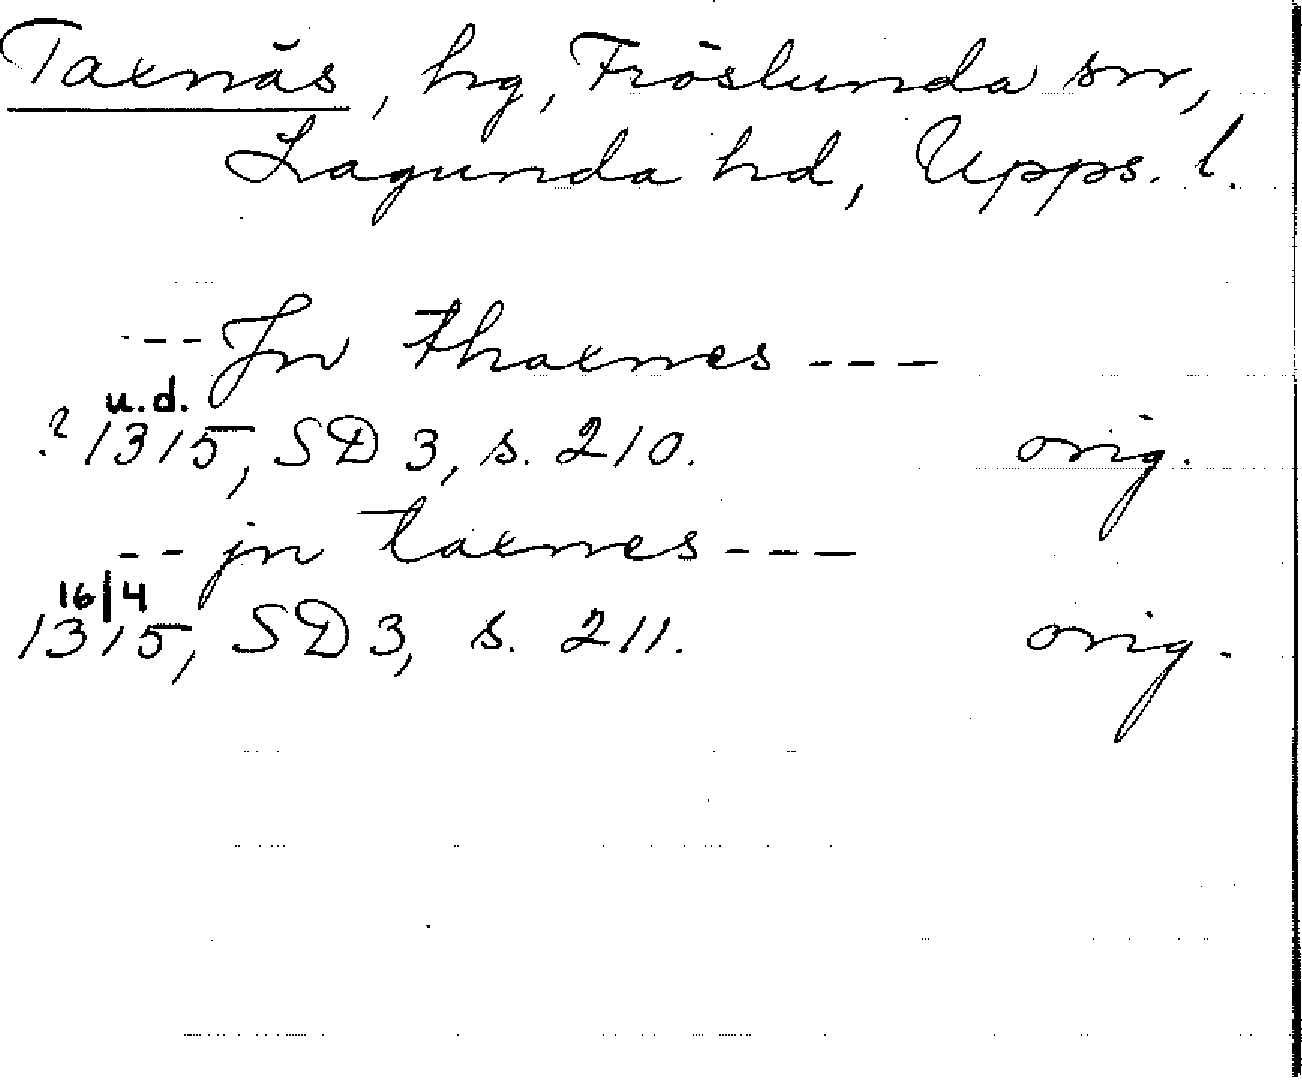 Taxnäs, hg, Fröslunda sn,
Lagunda hd, Upps. l.
--- Jn thaxnes ---
u.d.
? 1315, SD 3, s. 210. orig.
-- jn taxnes ---
16/4
1315, SD 3, s. 211. orig.